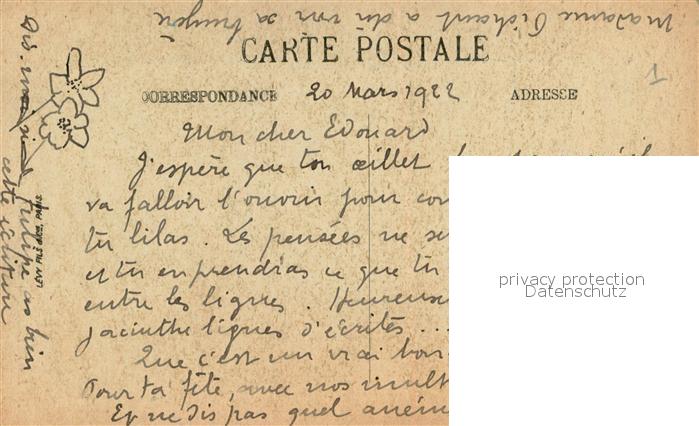 madame Pichaut a dû voir sa bruyère
CARTE POSTALE
CORRESPONDANCE
20 Mars 1922
ADRESSE
Mon cher Edouard
J'espère que ton œillet
va falloir l'ouvrir pour
tu lilas. Les pensées ne
et tu en prendras ce que tu
entre les lignes. Heureuse
jacinthe lignes d'écrites...
Que c'est un vrai bon
Pour ta fête, avec nos mult
Et ne dis pas quel aném
Dis-
tulipe as bien
cette écriture
LÉVY FILS & Cie, PARIS
privacy protection
Datenschutz